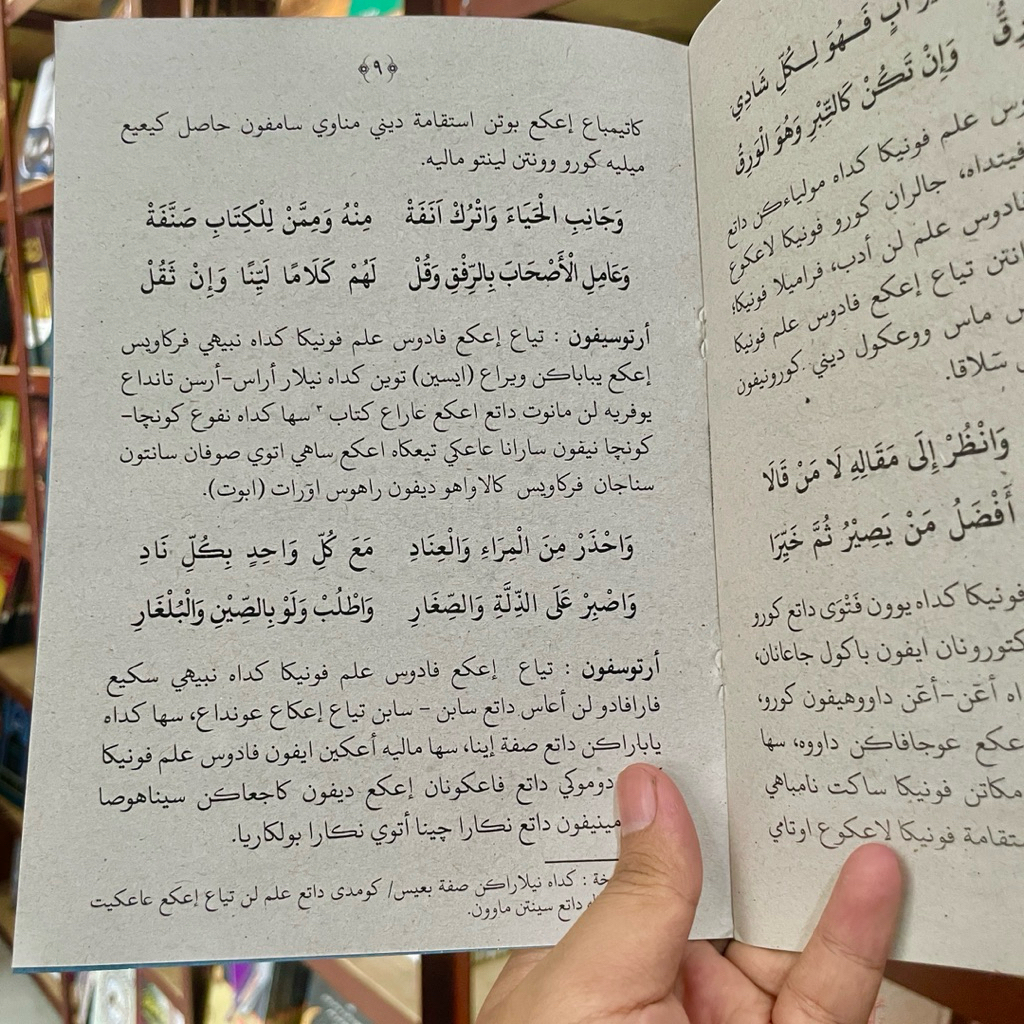 ﴿٩﴾
كاتيمباع إعكع بوتن استقامة ديني مناوي سامفون حاصل كيعيع
ميليه كورو وونتن لينتو ماليه.
وَجَانِبِ الْحَيَاءَ وَاتْرُكْ اَنَفَةْ مِنْهُ وَمِمَّنْ لِلْكِتَابِ صَنَّفَةْ
وَعَامِلِ الْأَصْحَابَ بِالرِّفْقِ وَقُلْ لَهُمْ كَلَامًا لَيِّنًا وَإِنْ ثَقُلْ
أرتوسيفون : تياع إعكع فادوس علم فونيكا كداه نبيهي فركاويس
إعكع يباباكن ويراع (ايسين) توين كداه نيلار أراس-أرسن تانداع
يوفريه لن مانوت داتع اعكع عاراع كتاب ٣ سها كداه نفوع كونچا-
كونچا نيفون سارانا عاعكي تيعكاه اعكع ساهي اتوي صوفان سانتون
سناجان فركاويس كالاواهو ديفون راهوس اوّرات (ابوت).
وَاحْذَرْ مِنَ الْمِرَاءِ وَالْعِنَادِ مَعَ كُلِّ وَاحِدٍ بِكُلِّ نَادِ
وَاصْبِرْ عَلَى الذِّلَّةِ وَالصِّغَارِ وَاطْلُبْ وَلَوْ بِالصِّيْنِ وَالْبُلْغَارِ
أرتوسفون : تياع إعكع فادوس علم فونيكا كداه نبيهي سكيع
فارافادو لن أعاس داتع سابن - سابن تياع إعكاع عونداع، سها كداه
ياباراكن داتع صفة إينا، سها ماليه أعكين ايفون فادوس علم فونيكا
دوموكي داتع فاعكونان إعكع ديفون كاجعاكن سيناهوصا
مينيفون داتع نكارا چينا أتوي نكارا بولكاريا.
كداه نيلاراكن صفة بعيس/ كومدى داتع علم لن تياع إعكع عاعكيت
داتع سينتن ماوون.
فَهُوَ لِكُلِّ شَادِي
وَإِنْ تَكُنْ كَالتِّبْرِ وَهُوَ الْوَرِقُ
علم فونيكا كداه مولياءكن داتع
فيتداه، جالران كورو فونيكا لاعكوع
فادوس علم لن أدب، فراميلا فونيكا؛
تياع إعكع فادوس علم فونيكا
ماس ووعكول ديني كورونيفون
سَلاقا.
وَانْظُرْ إِلَى مَقَالِهِ لَا مَنْ قَالَا
أَفْضَلُ مَنْ يَصِيْرُ ثُمَّ خَيِّرَا
فونيكا كداه يوون فَتْوَى داتع كورو
كتورونان ايفون باكول جاعانان،
أعَن-أعَن داووهيفون كورو،
عوجافاكن داووه، سها
فونيكا ساكت نامباهي
ستقامة فونيكا لاعكوع اوتامي